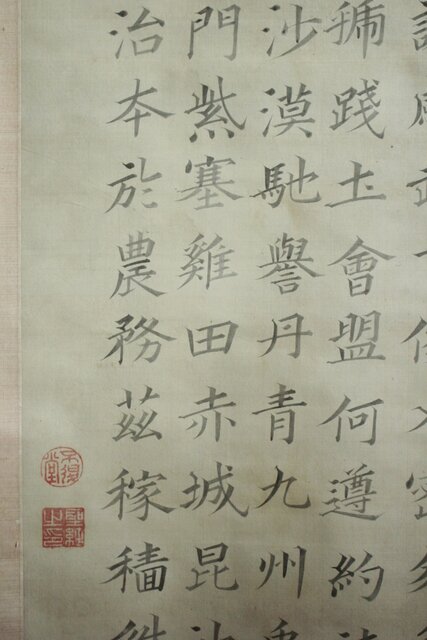 虢踐土會盟何遵約
沙漠馳譽丹青九州
門紫塞雞田赤城昆
治本於農務茲稼穡